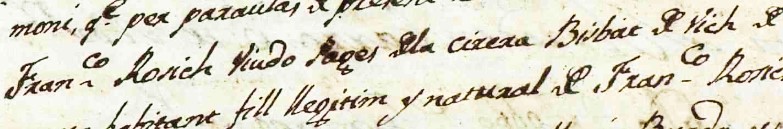 moni, qe per paraulas de present
Franco Rosich Viudo Pages de la cirera Bisbat de Vich de
habitant fill llegitim y natural de Franco Rosic